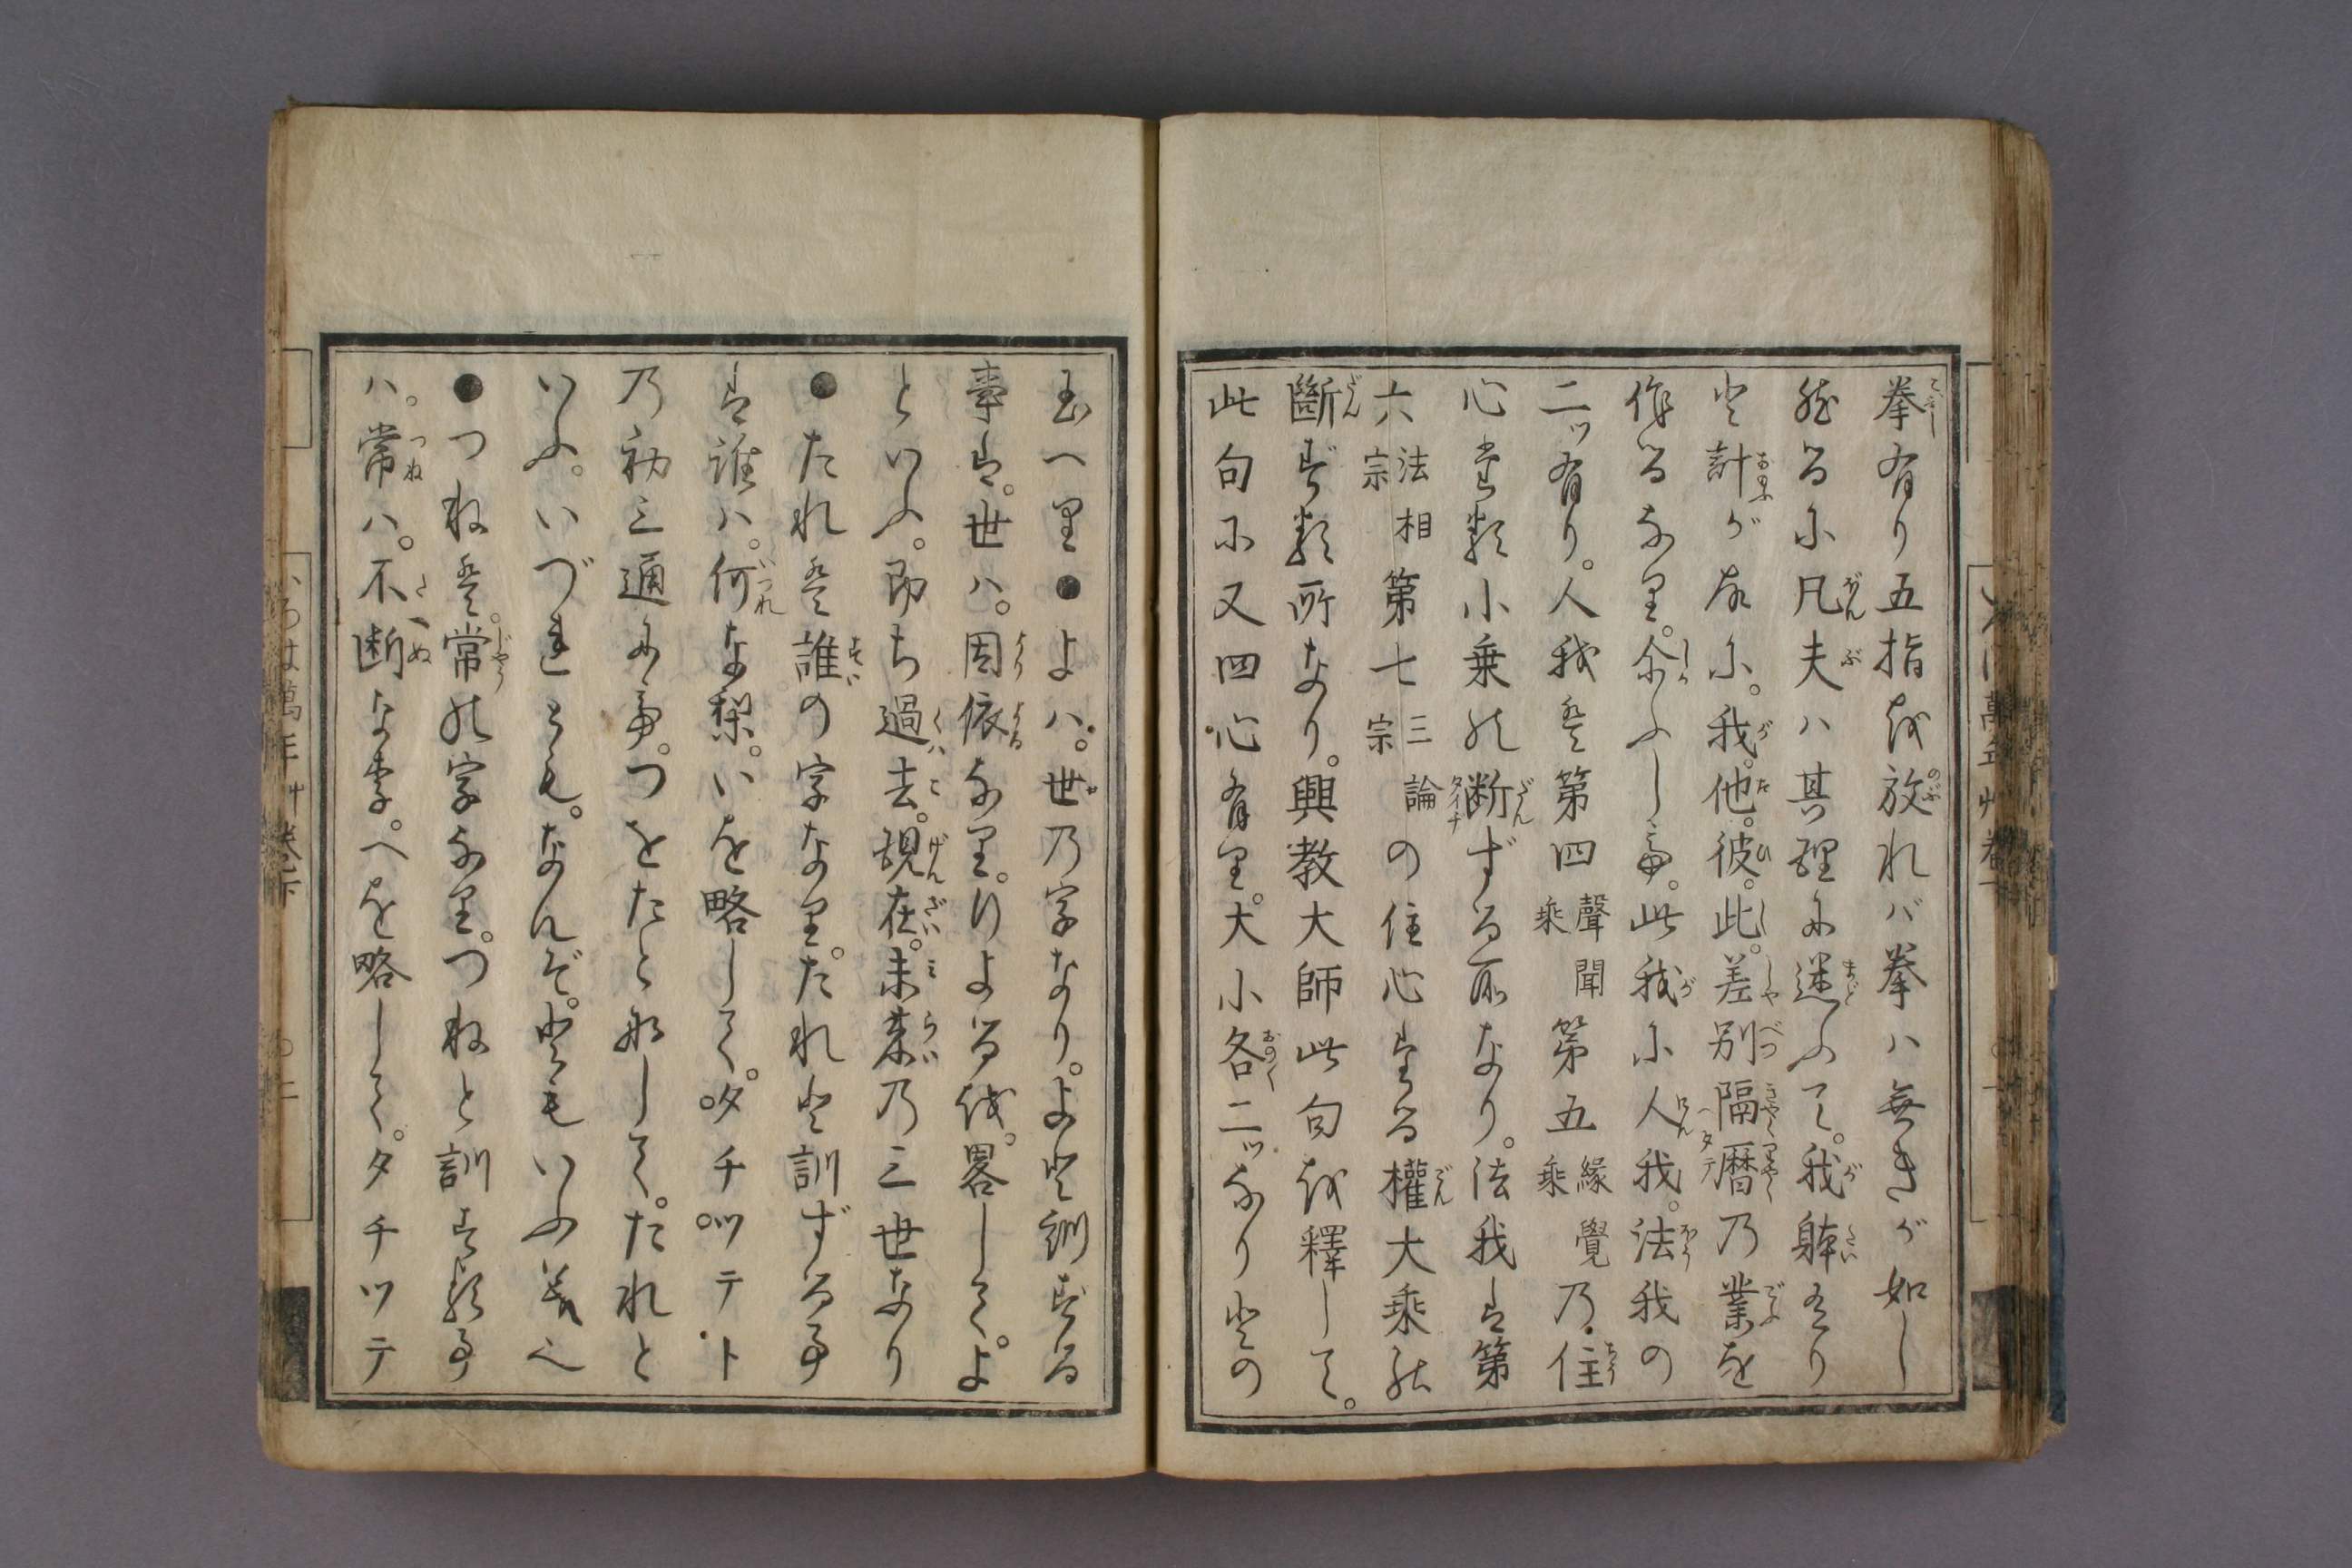 拳有り五指を放れバ拳ハ無きが如し
然るに凡夫ハ其理に迷ふて。我躰有り
と計が故に。我。他。彼。此。差別隔暦乃業を
作るなり。尒ふして。此我に人我。法我の
二ッ有り。人我は第四聲聞乘第五緣覺乘乃住
心す類小乗の断ずる所なり。法我は第
六法相宗第七三論宗の住心する權大乘の
斷ず類所なり。興教大師此句を釋して。
此句に又四心有り。大小各二ッなりとの
玉へり●よハ。世乃字なり。よと訓ずる
事は。世ハ。因依なり。りよるを。畧して。よ
といふ。即ち過去。現在。未来乃三世なり
●たれは誰の字なり。たれと訓ずる事
は誰ハ。何な梨。いを略して。タチツテト
乃初三通にて。つをたと那して。たれと
いふ。いづれとも。なんぞ。ともいふ義也
●つねは。常の字なり。つねと訓する事
ハ。常ハ。不断な李。へを略して。タチツテ